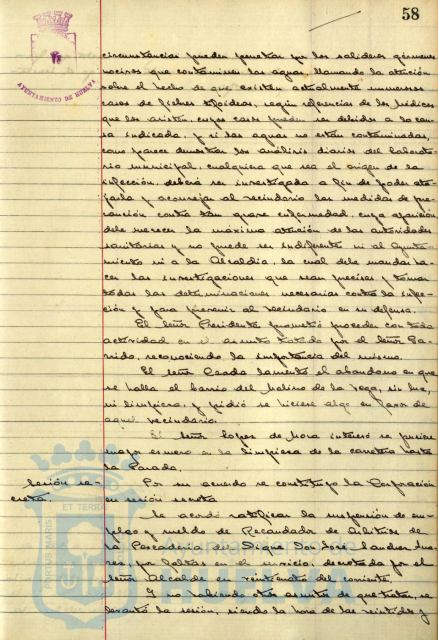 58
AYUNTAMIENTO DE HUELVA
circunstancias pueden penetrar por los salideros gérmenes
nocivos que contaminen las aguas, llamando la atención
sobre el hecho de que existan actualmente numerosos
casos de fiebres tifoideas, según referencias de los médicos
que los asisten, cuyos casos pueden ser debidos a la cau
sa indicada, y si las aguas no están contaminadas,
como parece demostrar los análisis diarios del laborato-
rio municipal, cualquiera que sea el origen de la
infección, deberá ser investigada a fin de poder ata
jarla y aconsejar al vecindario las medidas de pre-
caución contra tan grave enfermedad, cuya aparición
debe merecer la máxima atención de las autoridades
sanitarias y no puede ser indiferente ni al Ayunta-
miento ni a la Alcaldía, la cual debe mandar ha
cer las investigaciones que sean precisas y tomar
todas las determinaciones necesarias contra la infec-
ción y para prevenir al vecindario en su defensa.
El señor Presidente prometió proceder con toda
actividad en el asunto tratado por el señor Ga-
rrido, reconociendo la importancia del mismo.
El señor lamentó el abandono en que
se halla el barrio del Molino de la Vega, sin luz,
ni limpieza, y pidió se hiciese algo en favor de
aquel vecindario.
El señor López de Mora interesó se pusiese
mayor esmero en la limpieza de la carretera hasta
la Parada.
Sesión se-
creta.
Por su acuerdo se constituyó la Corporación
en sesión secreta
Se acordó ratificar la suspensión de em-
pleo y sueldo de Recaudador de Arbitrios de
la Pescadería del Dique Don José Sánchez Suá-
rez, por faltas en el servicio, decretada por el
señor Alcalde en veinticuatro del corriente.
Y no habiendo otros asuntos de que tratar, se
levantó la sesión, siendo la hora de las veintidós y
PORTUS MARIS ET TERRAE
Ayuntamiento de
HUELVA